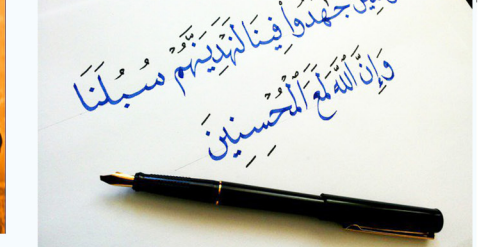 جَٰهَدُوا۟ فِينَا لَنَهْدِيَنَّهُمْ سُبُلَنَا
وَإِنَّ ٱللَّهَ لَمَعَ ٱلْمُحْسِنِينَ